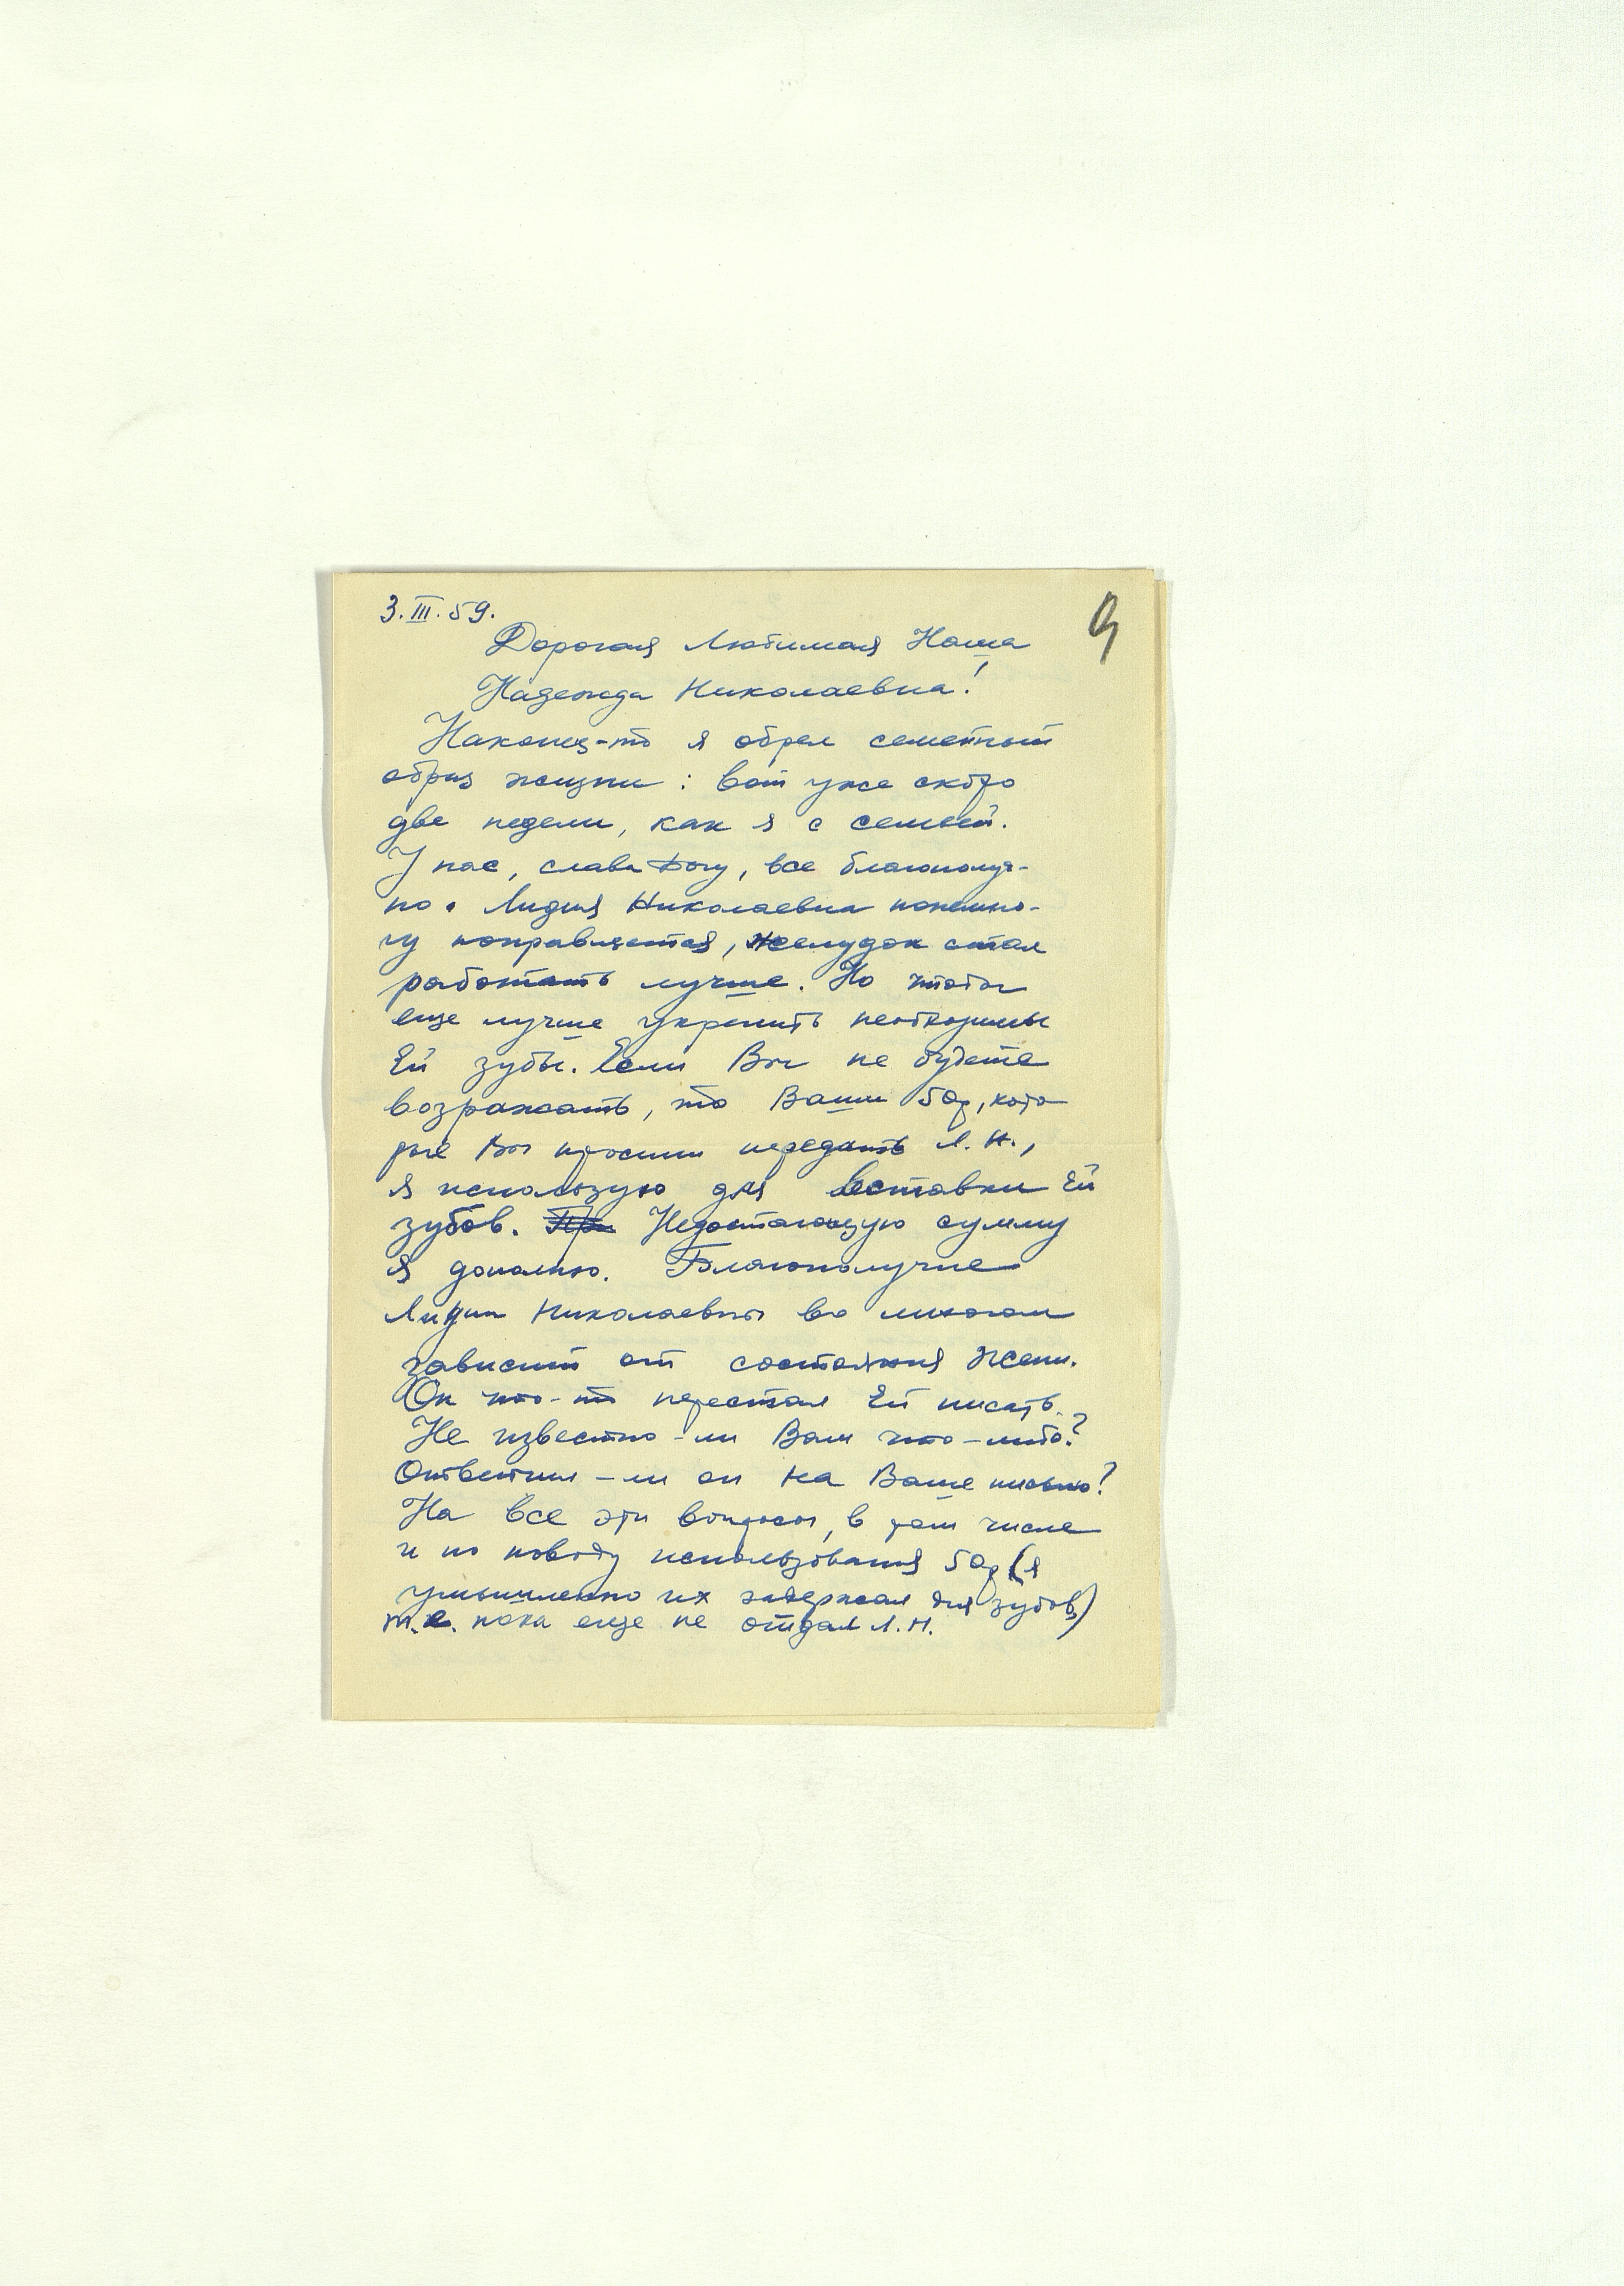 3.III.59.
9
Дорогая Любимая Наша
Надежда Николаевна!
Наконец-то я обрел семейный
образ жизни: вот уже скоро
две недели, как я с семьей.
У нас, слава Богу, все благополуч-
но. Лидия Николаевна понемно-
гу поправляется, желудок стал
работать лучше. Но чтобы
еще лучше укрепить необходимы
Ей зубы. Если Вы не будете
возражать, то Ваши 50р, кото
рые Вы просили передать Л. Н.,
я использую для вставки Ей
зубов. При Недостающую сумму
я дополню. Благополучие
Лидии Николаевны во многом
зависит от состояния Жени.
Он что-то перестал Ей писать.
Не известно-ли Вам что-либо?
Ответил-ли он на Ваше письмо?
На все эти вопросы, в том числе
и по поводу использования 50р (я
умышленно их задержал для зубов,
т.е. пока еще не отдал Л.Н.)